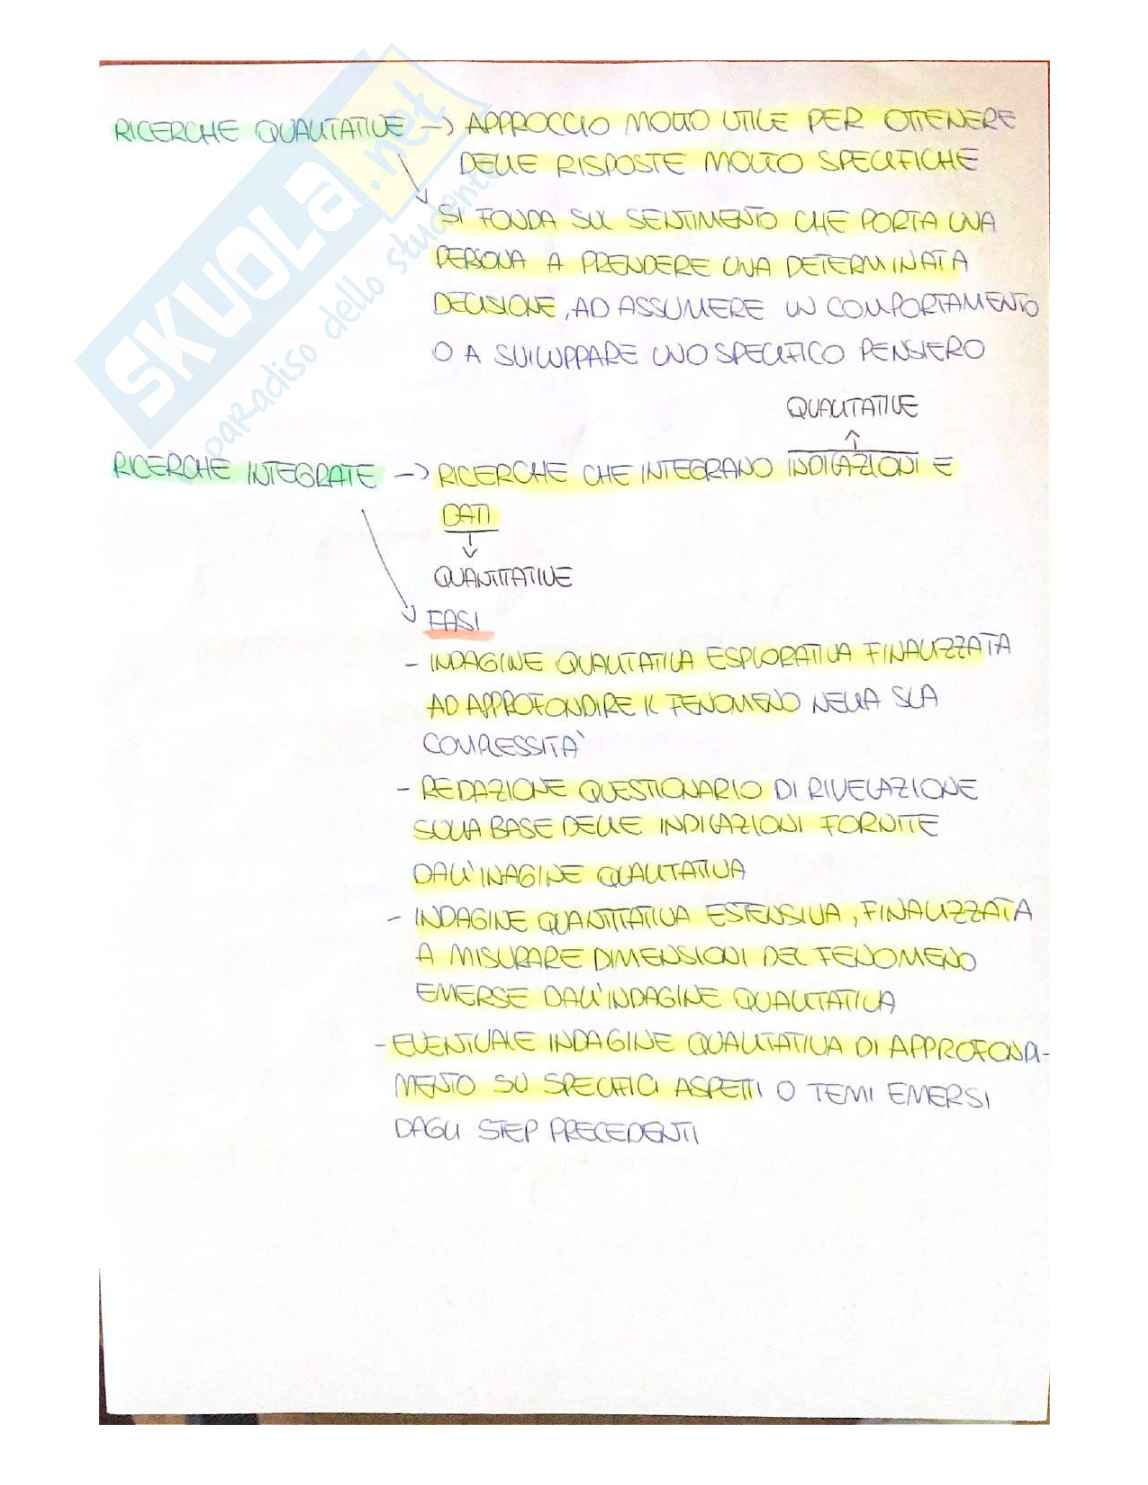 SKUOLA.net
paradiso dello studente
RICERCHE QUALITATIVE -> APPROCCIO MOLTO UTILE PER OTTENERE
DELLE RISPOSTE MOLTO SPECIFICHE
SI FONDA SUL SENTIMENTO CHE PORTA UNA
PERSONA A PRENDERE UNA DETERMINATA
DECISIONE, AD ASSUMERE UN COMPORTAMENTO
O A SVILUPPARE UNO SPECIFICO PENSIERO
QUALITATIVE
RICERCHE INTEGRATE -> RICERCHE CHE INTEGRANO INDICAZIONI E
DATI
QUANTITATIVE
FASI
- INDAGINE QUALITATIVA ESPLORATIVA FINALIZZATA
AD APPROFONDIRE IL FENOMENO NELLA SUA
COMPLESSITÀ
- REDAZIONE QUESTIONARIO DI RIVELAZIONE
SULLA BASE DELLE INDICAZIONI FORNITE
DALL'INAGINE QUALITATIVA
- INDAGINE QUANTITATIVA ESTENSIVA, FINALIZZATA
A MISURARE DIMENSIONI DEL FENOMENO
EMERSE DALL'INDAGINE QUALITATIVA
- EVENTUALE INDAGINE QUALITATIVA DI APPROFONDI-
MENTO SU SPECIFICI ASPETTI O TEMI EMERSI
DAGLI STEP PRECEDENTI